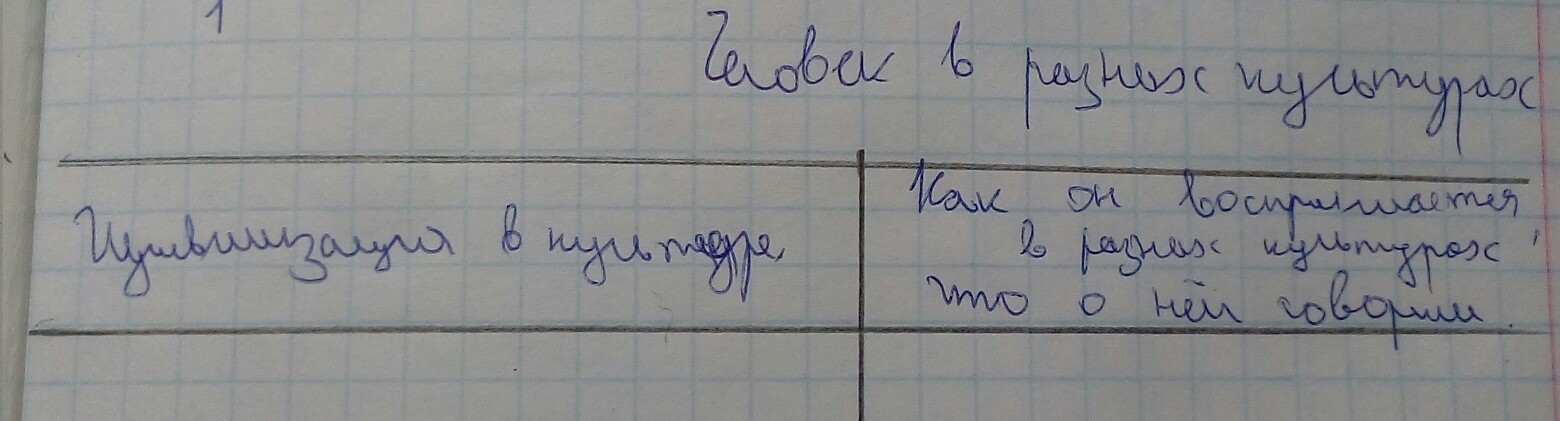 1
Человек в разных культурах
Цивилизация в культуре
Как он воспринимается
в разных культурах,
что о нём говорили.